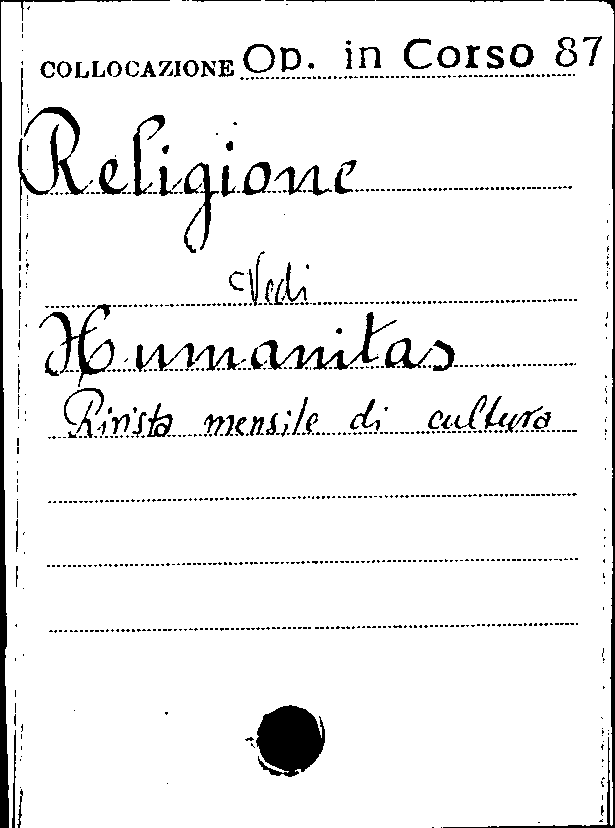 COLLOCAZIONE Op. in Corso 87
Religione
Vedi
Humanitas
Rivista mensile di cultura